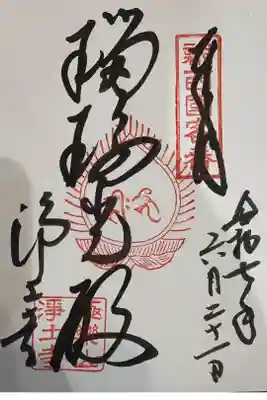 奉拝
新西国客番
令和七年
六月二十一日
瑠璃光殿
浄土寺
極楽山
淨土寺